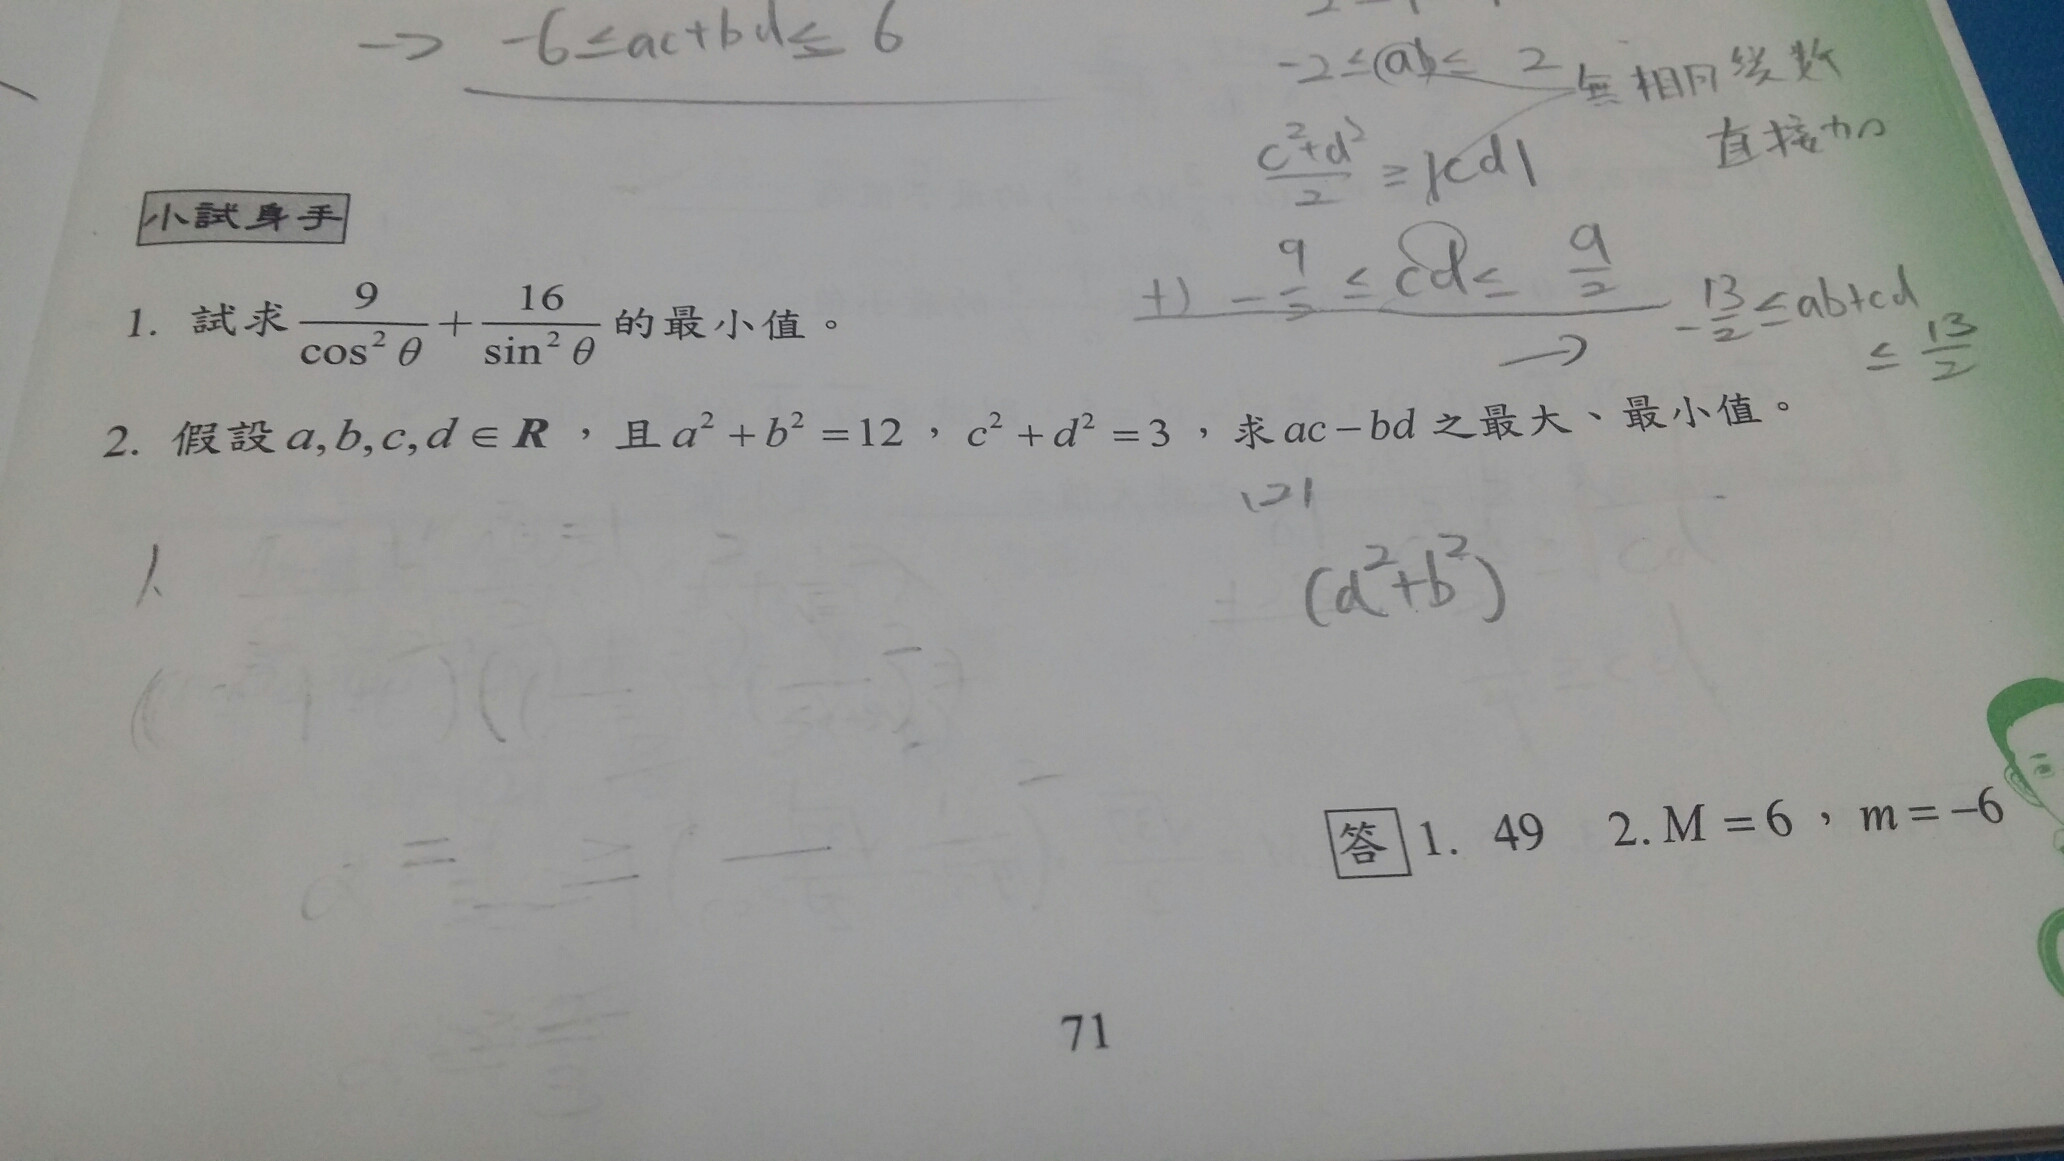 → -6≤ac+bd≤ 6
-2≤ab≤ 2 無相同變數
直接加
c²+d²/2 ≥ |cd|
+) -9/2 ≤ cd ≤ 9/2
→ -13/2 ≤ab+cd
≤ 13/2
小試身手
1. 試求 9/cos²θ + 16/sin²θ 的最小值。
2. 假設 a,b,c,d∈R，且 a²+b²=12，c²+d²=3，求 ac−bd 之最大、最小值。
1.
(d²+b²)
答 1. 49 2. M=6，m=−6
71